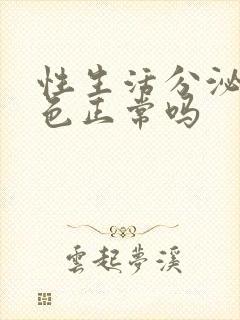 性生活分泌
色正常吗
雲起夢溪